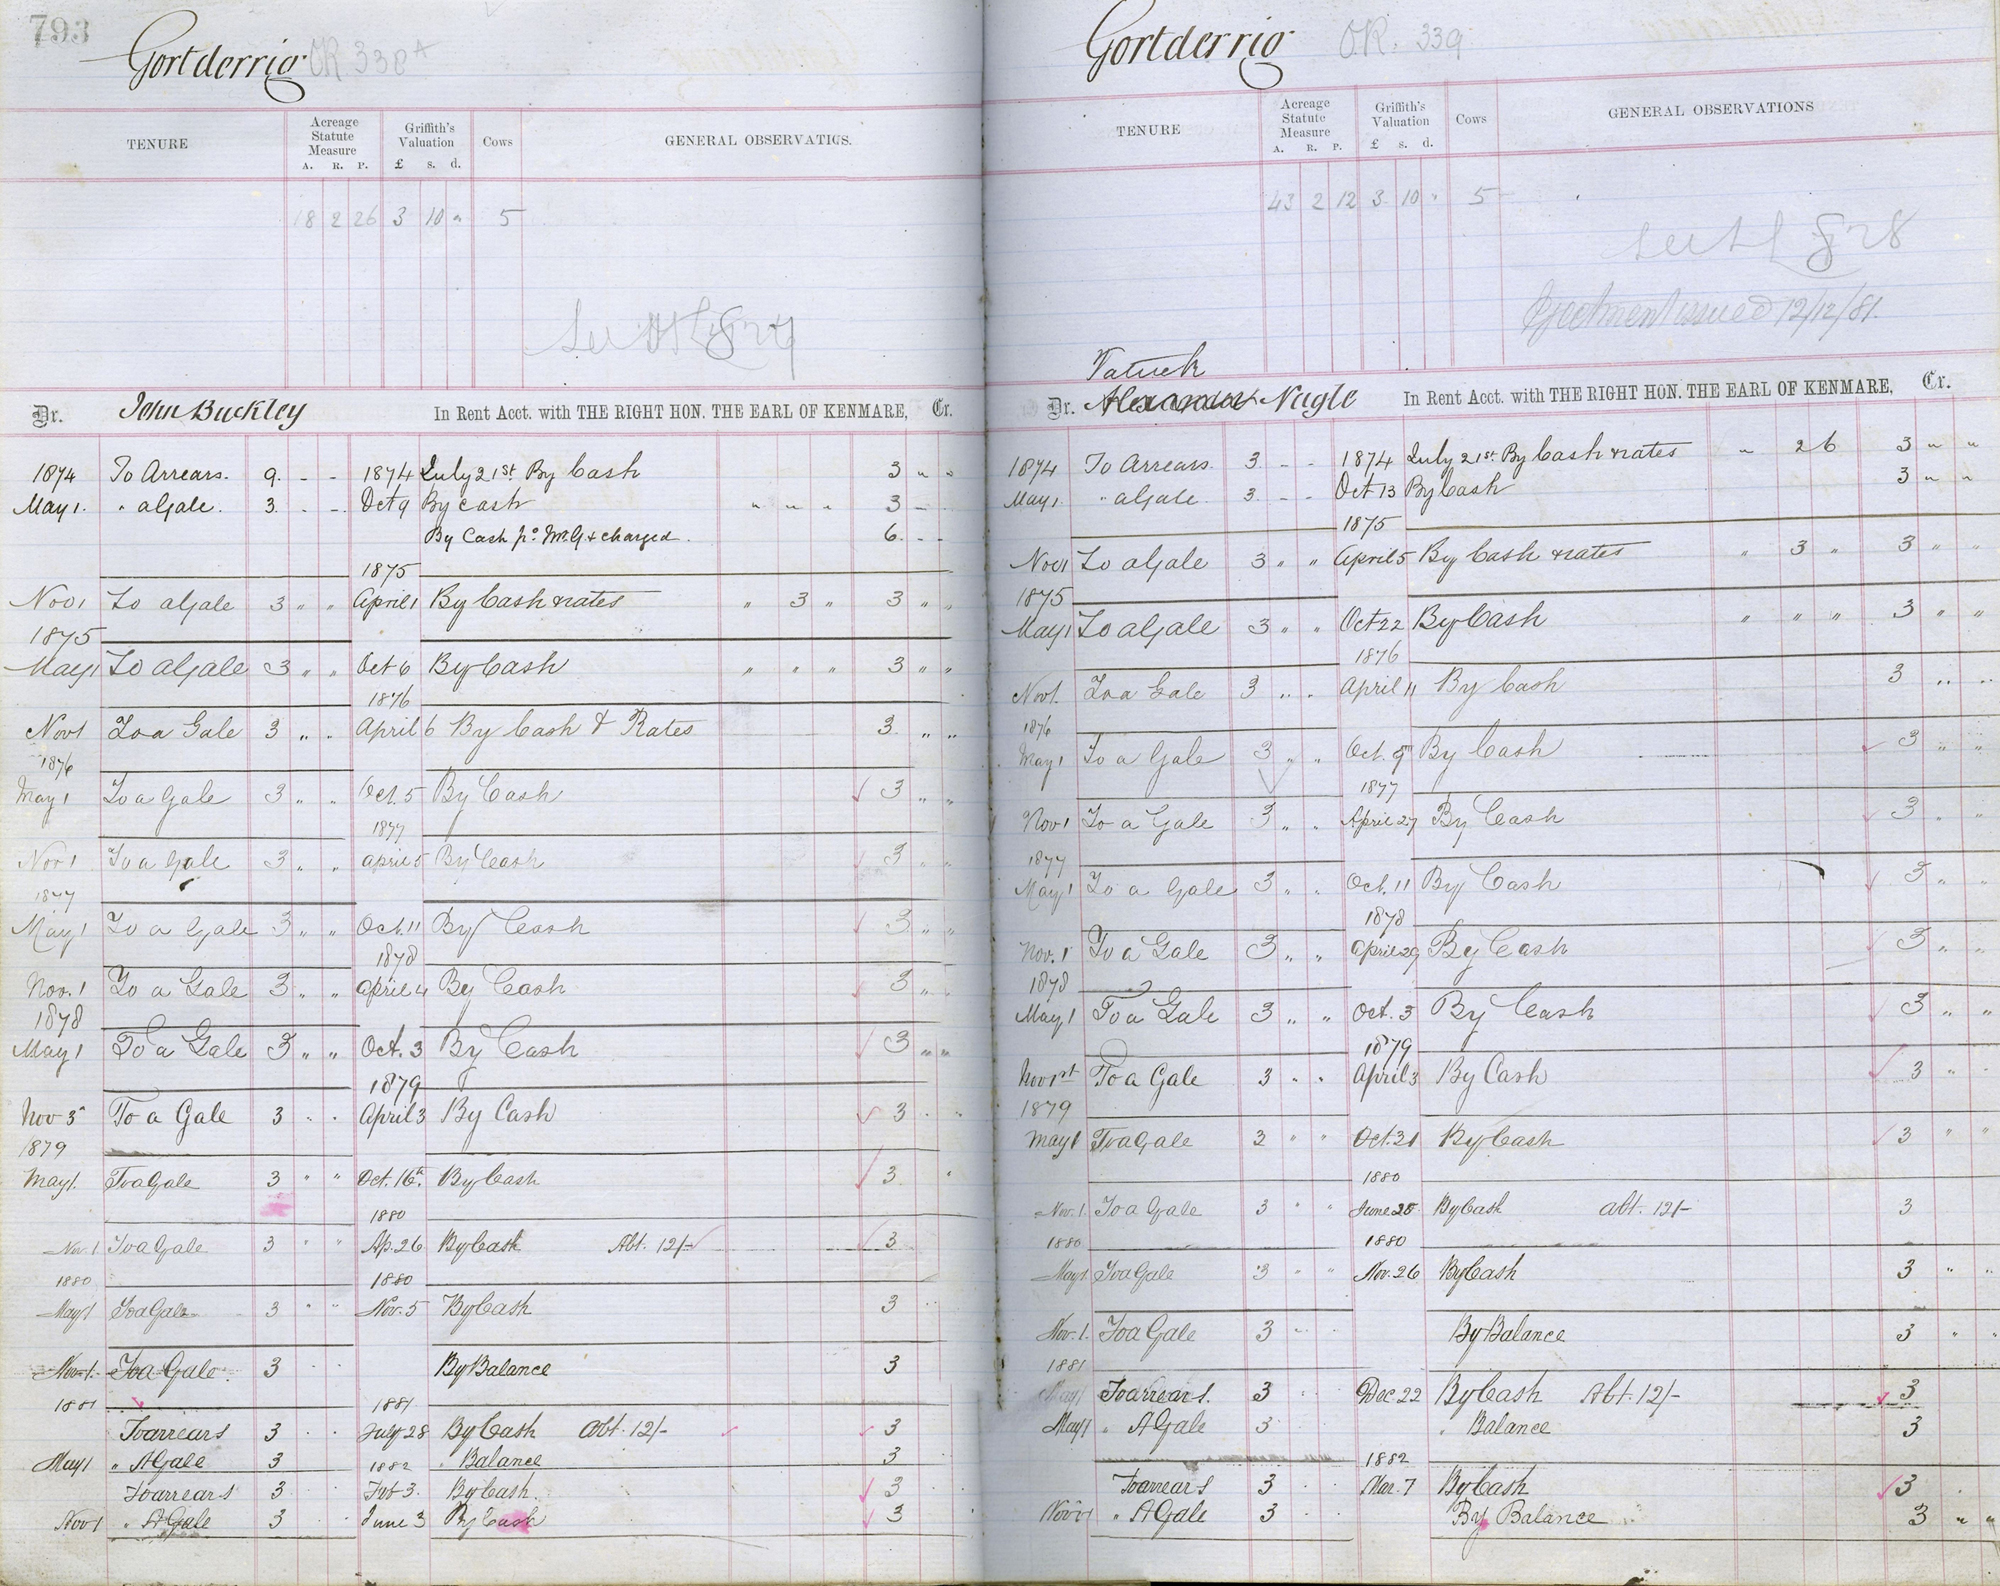 793
Gortderrig OR 338A
TENURE
Acreage Statute Measure A. R. P.
Griffith's Valuation £ s. d.
Cows
GENERAL OBSERVATIONS.
18 2 26 3 10 " 5
Dr. John Buckley In Rent Acct. with THE RIGHT HON. THE EARL OF KENMARE, Cr.
1874 To Arrears. 9 - - 1874 July 21st By Cash 3 " "
May 1. " a Gale. 3 - - Oct 9 By Cash " " " 3 - -
By Cash pr. McG & charged. 6 - -
1875
Nov 1 To a Gale 3 " " April 1 By Cash & rates " 3 " 3 " "
1875
May 1 To a Gale 3 " " Oct 6 By Cash " " " 3 " "
1876
Nov 1 To a Gale 3 " " April 6 By Cash & Rates 3 " "
1876
May 1 To a Gale 3 " " Oct. 5 By Cash 3 " "
1877
Nov 1 To a Gale 3 " " April 5 By Cash 3 " "
1877
May 1 To a Gale 3 " " Oct. 11 By Cash 3 " "
1878
Nov. 1 To a Gale 3 " " April 4 By Cash 3 " "
1878
May 1 To a Gale 3 " " Oct. 3 By Cash 3 " "
1879
Nov To a Gale 3 " " April 3 By Cash 3 " "
1879
May 1. To a Gale 3 " " Oct. 16th By Cash 3 "
1880
Nov. 1 To a Gale 3 " " Ap. 26 By Cash Abt. 12/- 3
1880 1880
May 1 To a Gale 3 " " Nov. 5 By Cash 3
Nov. 1. To a Gale 3 By Balance 3
1881 1881
To arrears 3 July 28 By Cash Abt. 12/- 3
May 1 " A Gale 3 1882 " Balance 3
To arrears 3 Feb 3. By Cash. 3
Nov 1 " A Gale 3 June 3 By Cash 3
Gortderrig OR. 339
TENURE
Acreage Statute Measure A. R. P.
Griffith's Valuation £ s. d.
Cows
GENERAL OBSERVATIONS
43 2 12 3 10 " 5
Ejectment issued 12/12/81.
Patrick
Dr. Alexander Nagle In Rent Acct. with THE RIGHT HON. THE EARL OF KENMARE, Cr.
1874 To Arrears. 3 - - 1874 July 21st By Cash & rates " 2 6 3 " "
May 1. " a Gale 3 - - Oct 13 By Cash 3 " "
1875
Nov 1 To a Gale 3 " " April 5 By Cash & rates " 3 " 3 " "
1875
May 1 To a Gale 3 " " Oct 22 By Cash " " " 3 " "
1876
Nov 1. To a Gale 3 " " April 11 By Cash 3 " "
1876
May 1 To a Gale 3 " " Oct. 9th By Cash 3 " "
1877
Nov 1 To a Gale 3 " " April 27 By Cash 3 " "
1877
May 1 To a Gale 3 " " Oct. 11 By Cash 3 " "
1878
Nov. 1 To a Gale 3 " " April 29 By Cash 3 " "
1878
May 1 To a Gale 3 " " Oct. 3 By Cash 3 " "
1879
Nov 1st To a Gale 3 " " April 3 By Cash 3 " "
1879
May 1 To a Gale 3 " " Oct. 21 By Cash 3 " "
1880
Nov. 1. To a Gale 3 " " June 25 By Cash abt. 12/- 3
1880 1880
May 1 To a Gale 3 " " Nov. 26 By Cash 3 " "
Nov. 1. To a Gale 3 By Balance 3 " "
1881
May 1 To arrears. 3 Dec. 22 By Cash Abt. 12/- 3
May 1 " A Gale 3 " Balance 3
1882
To arrears 3 Mar. 7 By Cash 3
Nov 1 " A Gale 3 By Balance 3 " "